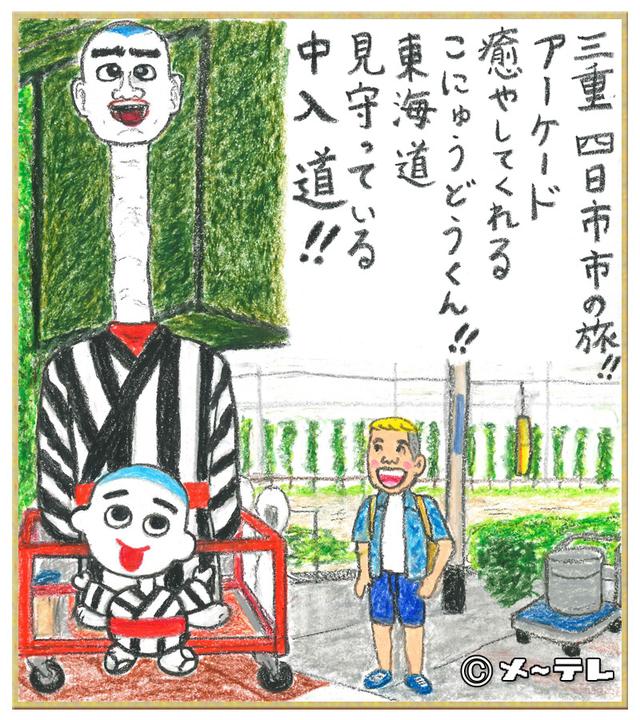 三重 四日市市の旅!!
アーケード
癒やしてくれる
こにゅうどうくん!!
東海道
見守っている
中入道!!
© メ〜テレ